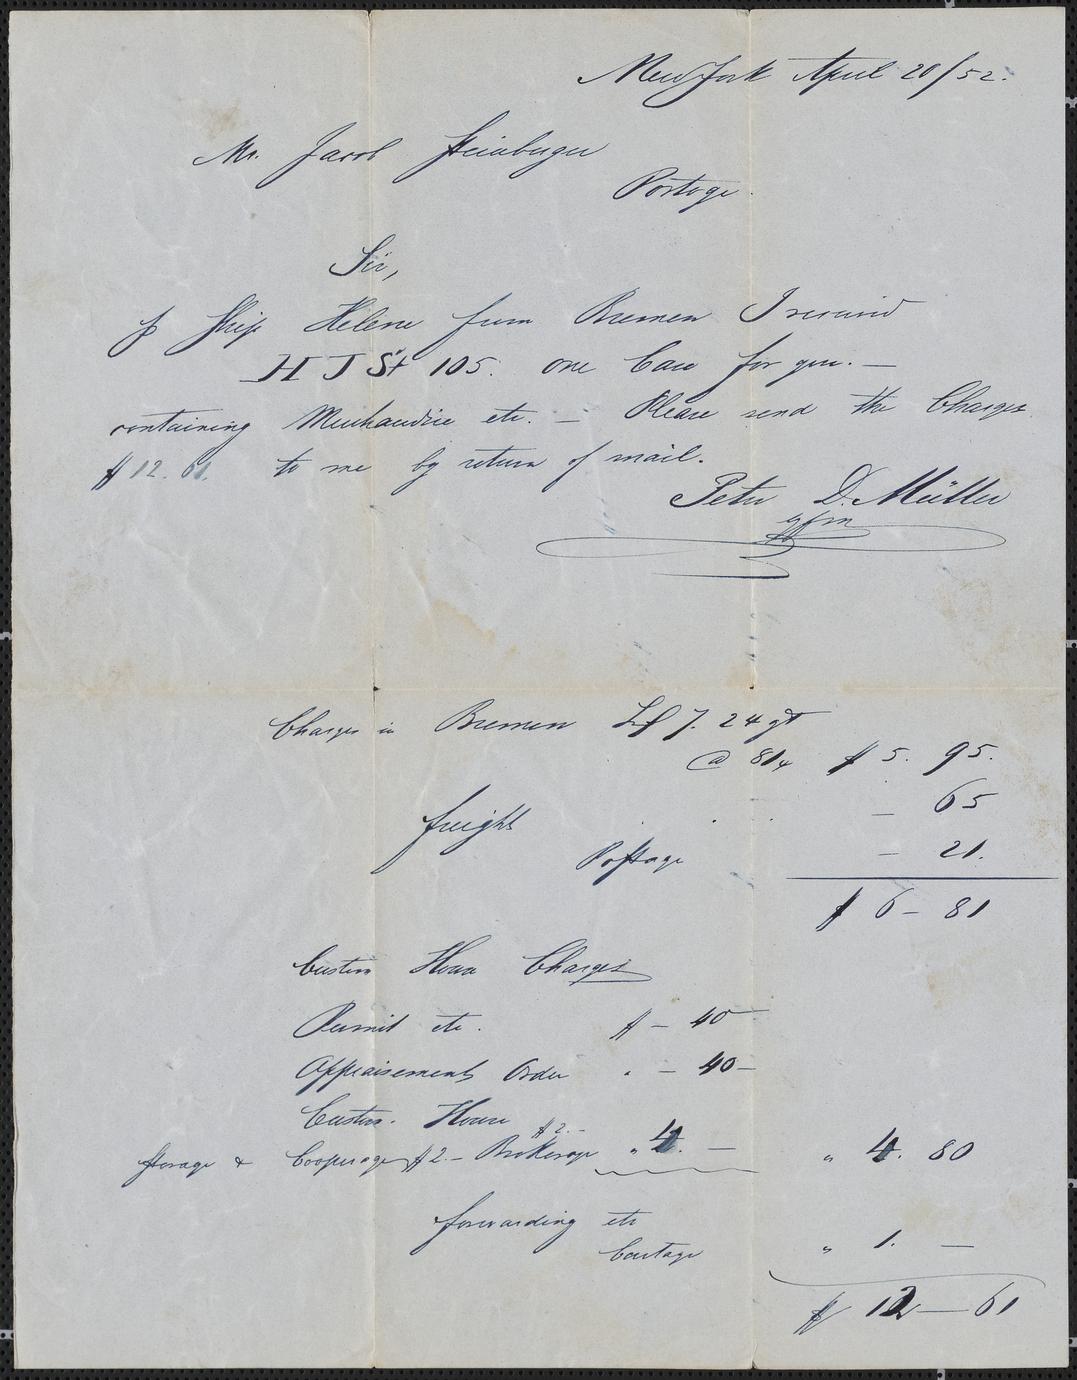 New York April 20/52.
Mr. Jacob Steinberger
Portage.
Sir,
p Ship Helene from Bremen I received
H J St 105. one Case for you. —
containing Merchandise etc. — Please send the Charges
$12.61. to me by return of mail.
Peter D. Müller
Charges in Bremen Ld'f 7. 24 gt
@ 81¼ $ 5. 95.
freight — 65
Postage — 21.
$ 6 – 81
Custom House Charges
Permit etc. $ – 40
Appraisement Order " – 40 –
Custom House $2. –
Storage & Cooperage $2. – Brokerage " 4. — " 4. 80
forwarding etc
Cartage " 1. —
$ 12 — 61